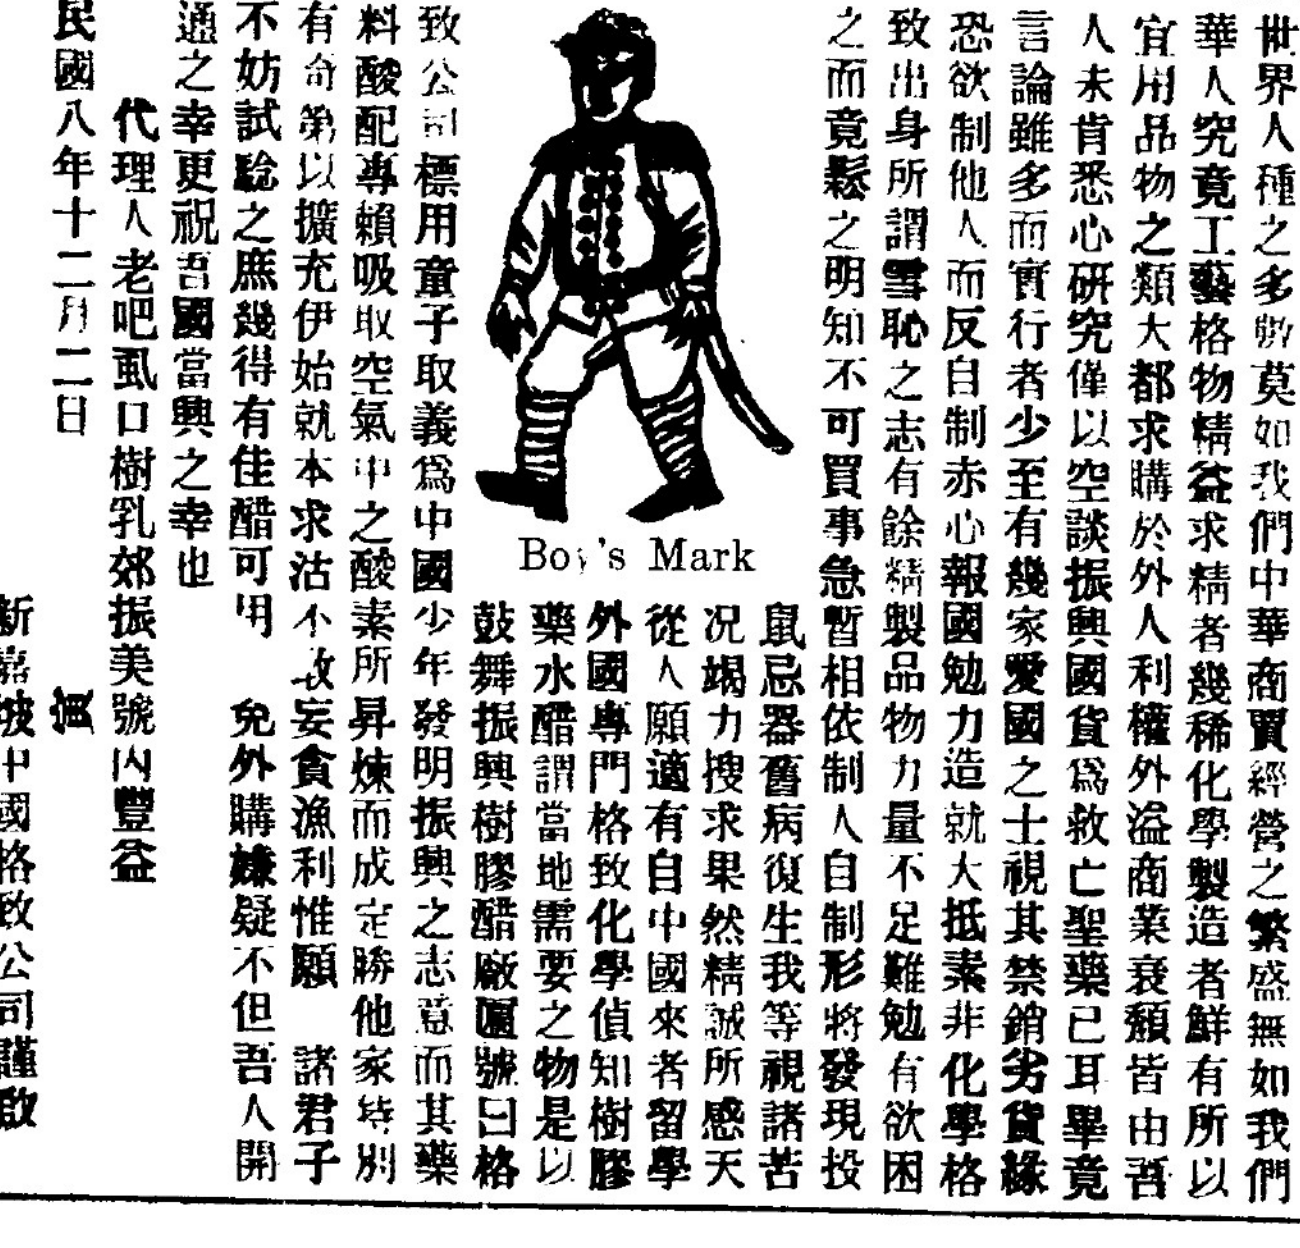 世界人種之多數莫如我們中華商賈經營之繁盛無如我們
華人究竟工藝格物精益求精者幾稀化學製造者鮮有所以
宜用品物之類大都求購於外人利權外溢商業衰頹皆由吾
人未肯悉心研究僅以空談振興國貨爲救亡聖藥已耳畢竟
言論雖多而實行者少至有幾家愛國之士視其禁銷劣貨緣
恐欲制他人而反自制赤心報國勉力造就大抵素非化學格
致出身所謂雪恥之志有餘精製品物力量不足難勉有欲困
之而竟鬆之明知不可買事急暫相依制人自制形將發現投
鼠忌器舊病復生我等視諸苦
况竭力搜求果然精誠所感天
從人願適有自中國來者留學
外國專門格致化學偵知樹膠
藥水醋謂當地需要之物是以
鼓舞振興樹膠醋廠匾號曰格
致公司標用童子取義爲中國少年發明振興之志意而其藥
料酸配專賴吸取空氣中之酸素所昇煉而成定勝他家特別
有奇第以擴充伊始就本求沽不敢妄貪漁利惟願 諸君子
不妨試驗之庶幾得有佳醋可用 免外購嫌疑不但吾人開
通之幸更祝吾國當興之幸也
代理人老吧虱口樹乳郊振美號內豐益
民國八年十二月二日
新嘉坡中國格致公司謹啟
Boy's Mark